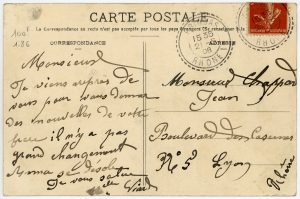 CARTE POSTALE
La Correspondance au recto n'est pas acceptée par tous les pays étrangers (Se renseigner à la poste)
CORRESPONDANCE
ADRESSE
Monsieur
Je viens auprès de
vous pour vous donner
des nouvelles de votre
frère il n'y a pas
grand changement
se désole
Je vous salue
Monsieur Chappard
Jean
Boulevard des Casernes
N° 5 Lyon
Rhône
RHONE